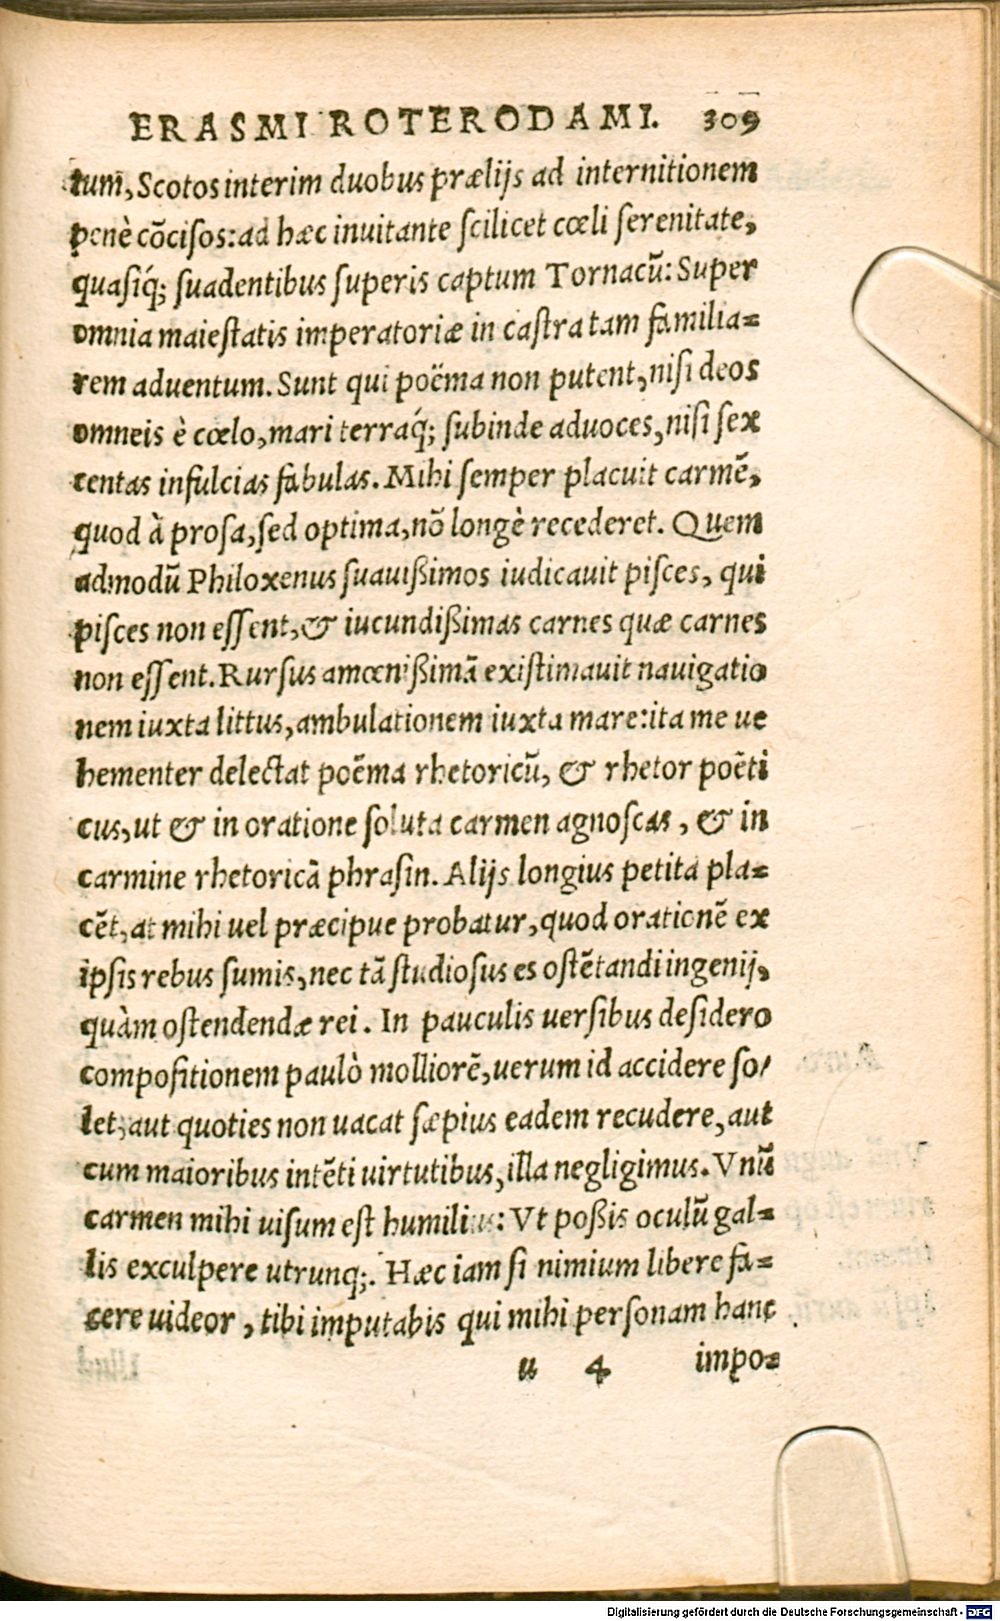 ERASMI ROTERODAMI. 309
tum, Scotos interim duobus prælijs ad internitionem
penè cõcisos: ad hæc inuitante scilicet cœli serenitate,
quasiq́; suadentibus superis captum Tornacũ: Super
omnia maiestatis imperatoriæ in castra tam familia=
rem aduentum. Sunt qui poëma non putent, nisi deos
omneis è cœlo, mari terraq́; subinde aduoces, nisi sex
centas infulcias fabulas. Mihi semper placuit carmẽ,
quod à prosa, sed optima, nõ longè recederet. Quem
admodũ Philoxenus suauißimos iudicauit pisces, qui
pisces non essent, & iucundißimas carnes quæ carnes
non essent. Rursus amœnißimã existimauit nauigatio
nem iuxta littus, ambulationem iuxta mare: ita me ue
hementer delectat poẽma rhetoricũ, & rhetor poẽti
cus, ut & in oratione soluta carmen agnoscas, & in
carmine rhetoricã phrasin. Alijs longius petita pla=
cẽt, at mihi uel præcipue probatur, quod orationẽ ex
ipsis rebus sumis, nec tã studiosus es ostẽtandi ingenij,
quàm ostendendæ rei. In pauculis uersibus desidero
compositionem paulò molliorẽ, uerum id accidere so/
let, aut quoties non uacat sæpius eadem recudere, aut
cum maioribus intẽti uirtutibus, illa negligimus. Vnũ
carmen mihi uisum est humilius: Vt poßis oculũ gal=
lis exculpere utrunq;. Hæc iam si nimium libere fa=
cere uideor, tibi imputabis qui mihi personam hanc
u 4 impo=
Digitalisierung gefördert durch die Deutsche Forschungsgemeinschaft - DFG